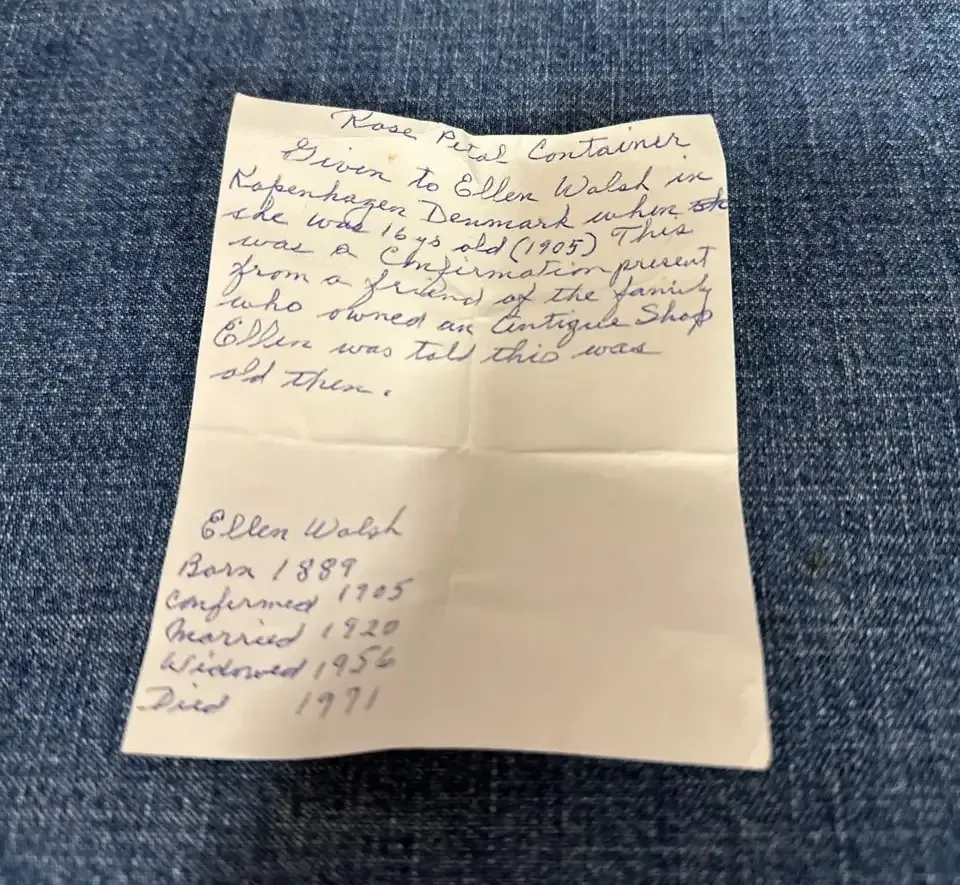 Rose Petal Container
Given to Ellen Walsh in
Kopenhagen Denmark when
she was 16 ys old (1905) This
was a Confirmation present
from a friend of the family
who owned an Antique Shop
Ellen was told this was
old then.
Ellen Walsh
Born 1889
Confirmed 1905
Married 1920
Widowed 1956
Died 1971